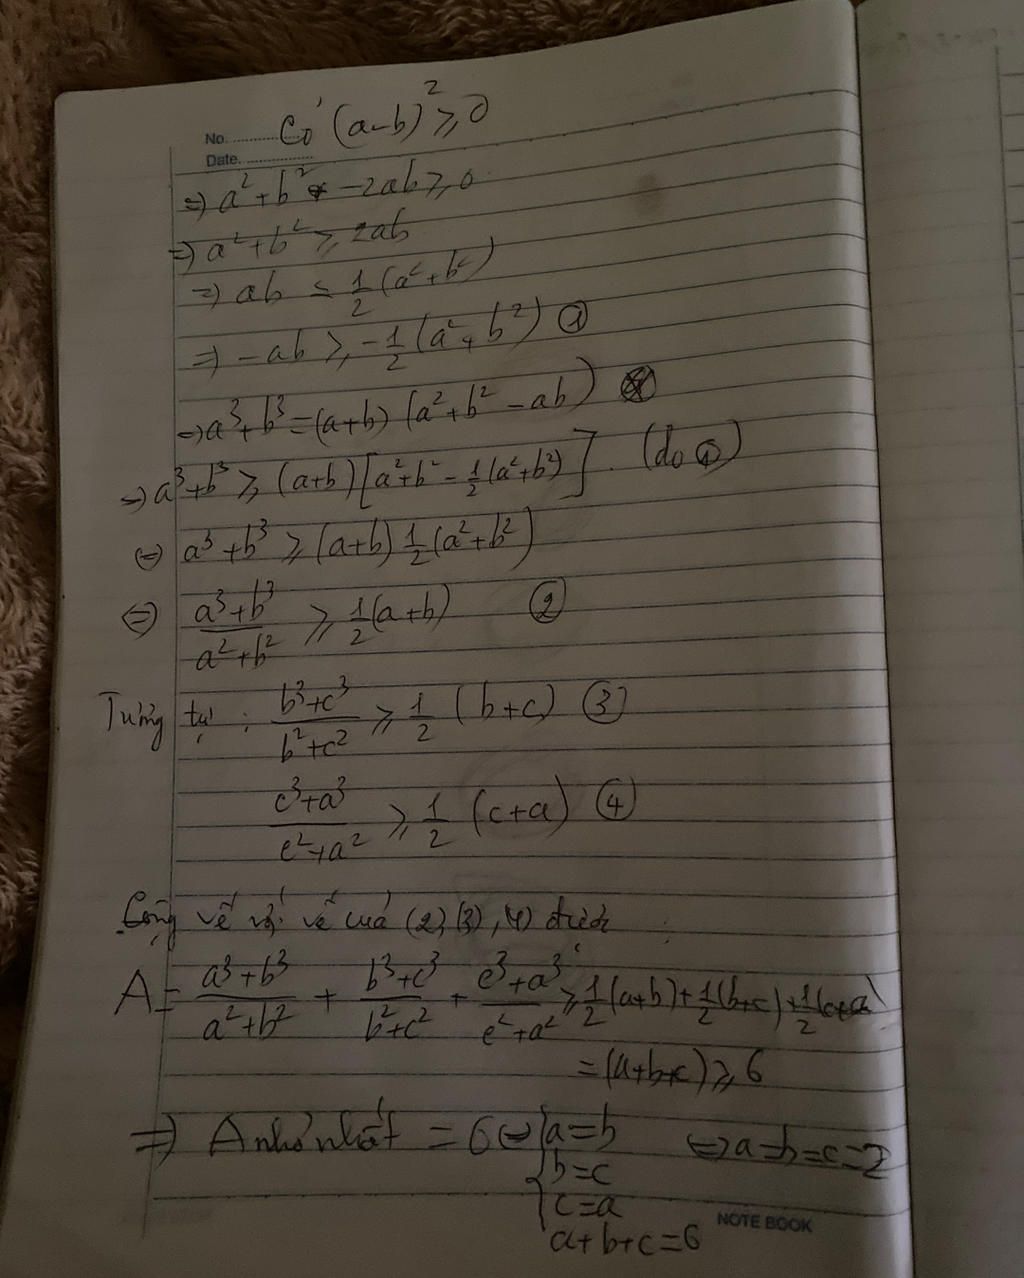 Có (a-b)² ≥ 0
No.
Date.
=> a² + b² - 2ab ≥ 0
=> a² + b² ≥ 2ab
=> ab ≤ 1/2 (a² + b²)
=> -ab ≥ -1/2 (a² + b²) ①
=> a³ + b³ = (a+b) (a² + b² - ab)
=> a³ + b³ ≥ (a+b) [a² + b² - 1/2 (a² + b²)]. (do ①)
<=> a³ + b³ ≥ (a+b) 1/2 (a² + b²)
<=> (a³ + b³)/(a² + b²) ≥ 1/2 (a+b) ②
Tương tự : (b³ + c³)/(b² + c²) ≥ 1/2 (b+c) ③
(c³ + a³)/(c² + a²) ≥ 1/2 (c+a) ④
Cộng vế với vế của (2), (3), (4) được :
A = (a³ + b³)/(a² + b²) + (b³ + c³)/(b² + c²) + (c³ + a³)/(c² + a²) ≥ 1/2 (a+b) + 1/2 (b+c) + 1/2 (c+a)
= (a+b+c) ≥ 6
=> A nhỏ nhất = 6 <=> { a = b <=> a = b = c = 2
b = c
c = a
a + b + c = 6
NOTE BOOK